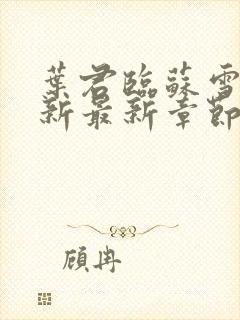 葉君臨蘇雪
新最新章節
顾冉